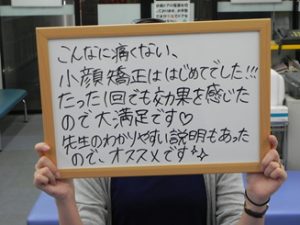 こんなに痛くない、
小顔矯正ははじめてでした!!!
たった1回でも効果を感じた
ので大満足です♡
先生のわかりやすい説明もあった
ので、オススメです